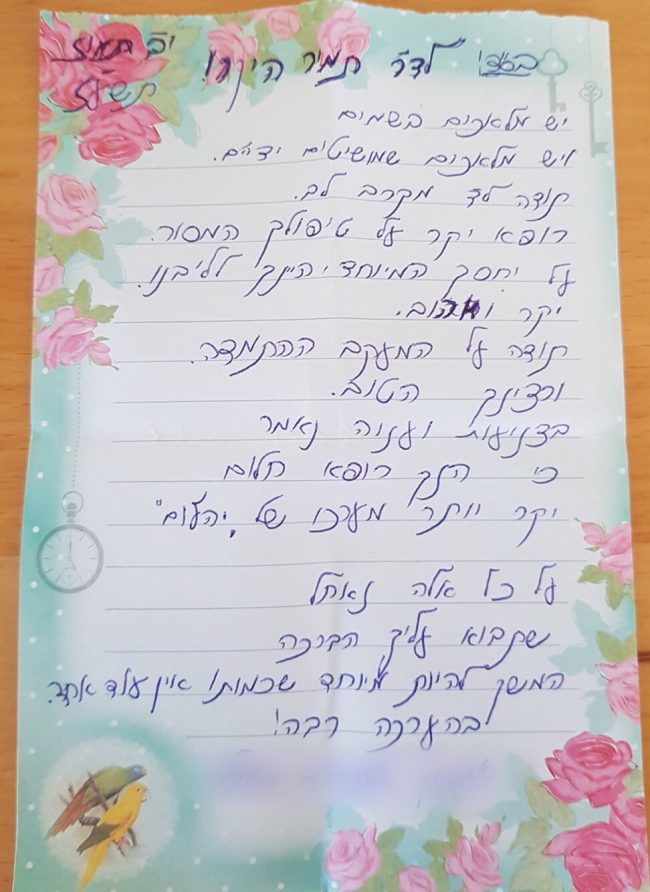 בס"ד! לד"ר תמיר היקר! י"ב תמוז
תשע"ז
יש מלאכים בשמים
ויש מלאכים שמושיטים ידיהם.
תודה לך מקרב לב.
רופא יקר על טיפולך המסור.
על יחסך המיוחד, היינך לליבנו.
יקר ואהוב.
תודה על המעקב ההתמדה.
ורצינך הטוב.
בצניעות וענוה נאמר
כי הנך רופא חלום
יקר יותר מערכו של "יהלום"
על כל אלה נאחל
שתבוא עליך הברכה
המשך להיות מיוחד שכמותו אין עוד אחד.
בהערכה רבה!